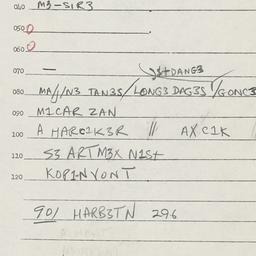 040 M3-SIR3
050 0
060 0
070 —
JS+DANG3
080 MA/J/N3 TAN3S/LONG3 DAG3S/GONC3
090 M1CAR ZAN
100 A HARC1K3R // AX C1K
110 S3 ARTM3X N1St
120 KOP1NVONT
901 HARB3TN 296